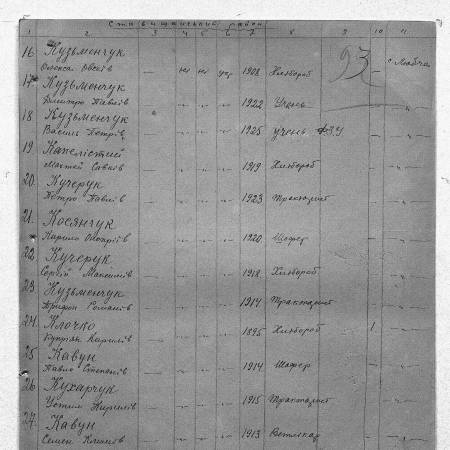 Ставищанський район
1 2 3 4 5 6 7 8 9 10 11
16 Кузьменчук
Олекса Овсіїв — н н укр. 1908 Хлібороб 93 с. Любча
17 Кузьменчук
Дмитро Павлів — „ „ „ 1922 Учень — „
18 Кузьменчук
Василь Петрів — „ „ „ 1925 учень ФЗУ — „
19 Капелістий
Савків — „ „ „ 1919 Хлібороб — „
20. Кучерук
Петро Павлів — „ „ „ 1923 Тракторист — „
21. Косянчук
Кирило — „ „ „ 1920 Шофер — „
22. Кучерук
Сергій Максимів — „ „ „ 1918 Хлібороб — „
23. Кузьменчук
Трифон Романів — „ „ „ 1914 Тракторист — „
24. Клочко
Купріян Кирилів — „ „ „ 1895 Хлібороб 1 „
25 Кавун
Павло Степанів — „ „ „ 1914 Шофер — „
26 Кухарчук
Устим Кирилів — „ „ „ 1915 Тракторист — „
27. Кавун
Семен — „ „ „ 1913 Ветлікар — „